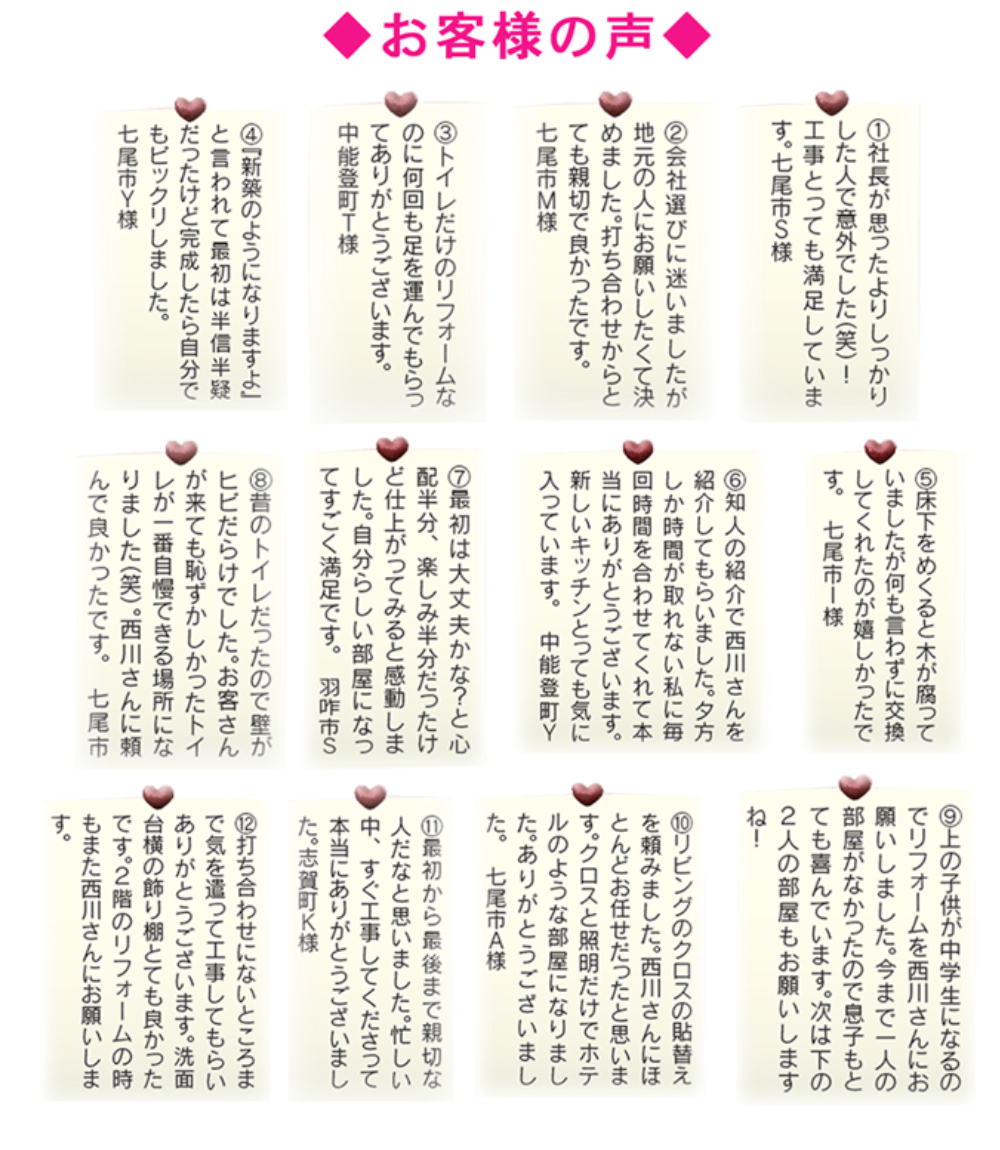 ◆お客様の声◆
①社長が思ったよりしっかり
した人で意外でした(笑)!
工事とっても満足していま
す。七尾市S様
②会社選びに迷いましたが
地元の人にお願いしたくて決
めました。打ち合わせからと
ても親切で良かったです。
七尾市M様
③トイレだけのリフォームな
のに何回も足を運んでもらっ
てありがとうございます。
中能登町T様
④『新築のようになりますよ』
と言われて最初は半信半疑
だったけど完成したら自分で
もビックリしました。
七尾市Y様
⑤床下をめくると木が腐って
いましたが何も言わずに交換
してくれたのが嬉しかったで
す。 七尾市I様
⑥知人の紹介で西川さんを
紹介してもらいました。夕方
しか時間が取れない私に毎
回時間を合わせてくれて本
当にありがとうございます。
新しいキッチンとっても気に
入っています。 中能登町Y
⑦最初は大丈夫かな?と心
配半分、楽しみ半分だったけ
ど仕上がってみると感動しま
した。自分らしい部屋になっ
てすごく満足です。 羽咋市S
⑧昔のトイレだったので壁が
ヒビだらけでした。お客さん
が来ても恥ずかしかったトイ
レが一番自慢できる場所にな
りました(笑)。西川さんに頼
んで良かったです。 七尾市
⑨上の子供が中学生になるの
でリフォームを西川さんにお
願いしました。今まで一人の
部屋がなかったので息子もと
ても喜んでいます。次は下の
2人の部屋もお願いします
ね!
⑩リビングのクロスの貼替え
を頼みました。西川さんにほ
とんどお任せだったと思いま
す。クロスと照明だけでホテ
ルのような部屋になりまし
た。ありがとうございまし
た。 七尾市A様
⑪最初から最後まで親切な
人だなと思いました。忙しい
中、すぐ工事してくださって
本当にありがとうございまし
た。志賀町K様
⑫打ち合わせにないところま
で気を遣って工事してもらい
ありがとうございます。洗面
台横の飾り棚とても良かった
です。2階のリフォームの時
もまた西川さんにお願いしま
す。